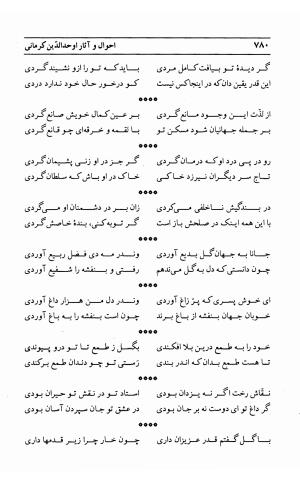 ۷۸۰ احوال و آثار اوحدالدّین کرمانی
گر دیدهٔ تو بیافت کامل مردی باید که تو را ازو نشیند گردی
این قدر یقین دان که در اینجا کس نیست کو درخور حال خود ندارد دردی
****
از لذّت این وجود مانع گردی بر عین کمال خویش صانع گردی
بر جمله جهانیان شود مسکن تو با لقمه و خرقه‌ای چو قانع گردی
****
رو در پی درد او که درمان گردی گر جز در او زنی پشیمان گردی
تاج سر دیگران نیرزد خاکی خاک در او باش که سلطان گردی
****
در بندگیش ناخلفی می‌کردی زان بر در دشمنان او می‌گردی
با این همه اینک در صلحش باز است گر توبه کنی، بندهٔ خاصش گردی
****
جانا به جهان گل بدیع آوردی وندر مه دی فضل ربیع آوردی
چون دانستی که دل به گل می‌ندهم رفتی و بنفشه را شفیع آوردی
****
ای خوش پسری که پرّ زاغ آوردی وندر دل من هزار داغ آوردی
خوبان جهان بنفشه از باغ برند چون است بنفشه را به باغ آوردی
****
خود را به طمع درین بلا افکندی بگسل ز طمع تا تو درو پیوندی
تا هست طمع بدان که اندر بندی رستی تو چو دندان طمع برکندی
****
نقّاش رخت اگر نه یزدان بودی استاد تو در نقش تو حیران بودی
گر داغ تو ای دوست نه بر جان بودی در عشق تو جان سپردن آسان بودی
****
با گل گفتم قدر عزیزان داری چون خار چرا زیر قدمها داری